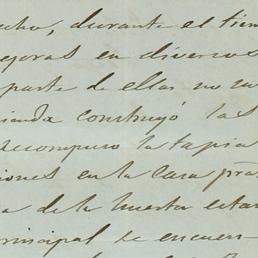 echo, durante el tiem
ejoras en diversos
parte de ellas no su
ienda construyó las
recompuso la tapia
iones en la casa pr
a de la huerta estar
rincipal se encuen-